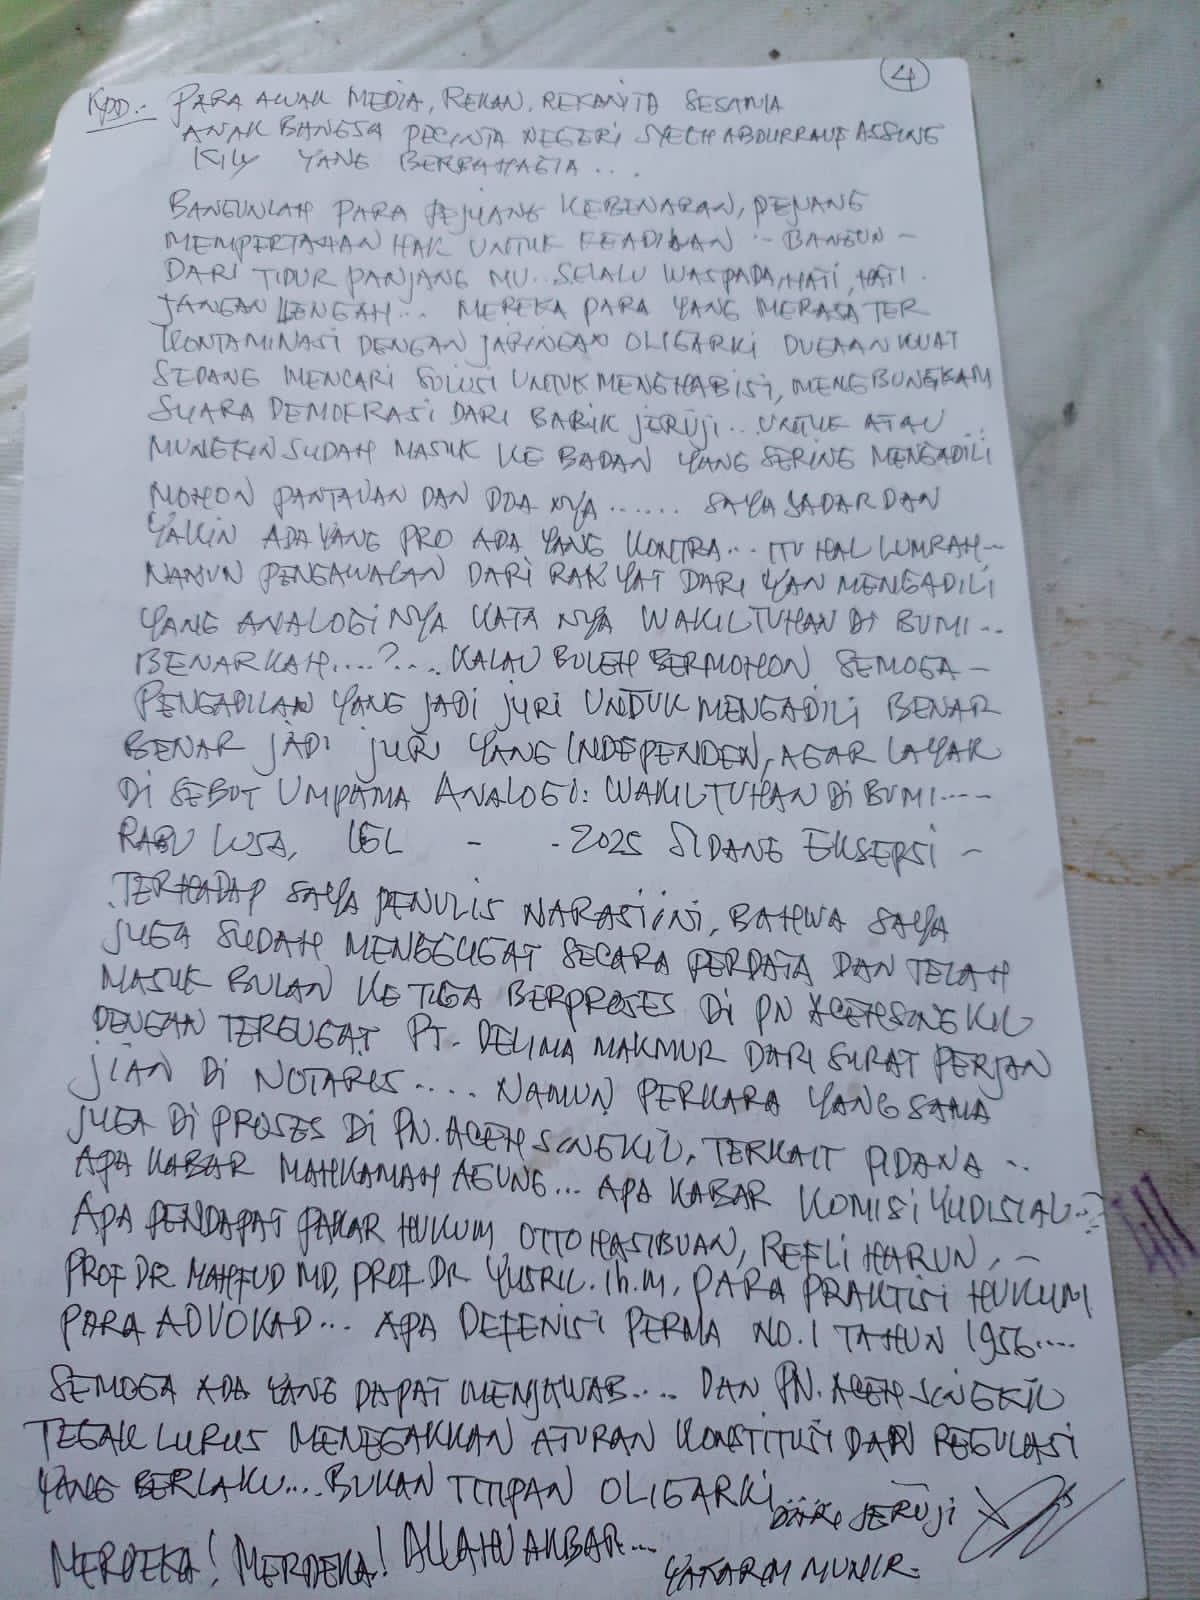 4
KPD:- PARA AWAK MEDIA, REKAN, REKANITA SESAMA
ANAK BANGSA PECINTA NEGERI SYECH ABDURRAUF ASSING
KILY YANG BERBAHAGIA...
BANGUNLAH PARA PEJUANG KEBENARAN, PEJUANG
MEMPERTAHAN HAK UNTUK KEADILAN -- BANGUN -
DARI TIDUR PANJANG MU.. SELALU WASPADA, HATI, HATI.
JANGAN LENGAH... MEREKA PARA YANG MERASA TER
KONTAMINASI DENGAN JARINGAN OLIGARKI DUGAAN KUAT
SEDANG MENCARI SOLUSI UNTUK MENGHABISI, MENGBUNGKAM
SUARA DEMOKRASI DARI BARIK JERUJI... UNTUK ATAU..
MUNGKIN SUDAH MASUK KE BADAN YANG SERING MENGADILI
MOHON PANTAUAN DAN DOA NYA...... SAYA SADAR DAN
YAKIN ADA YANG PRO ADA YANG KONTRA... ITU HAL LUMRAH--
NAMUN PENGAWALAN DARI RAKYAT DARI YAN MENGADILI
YANG ANALOGINYA KATA NYA WAKIL TUHAN DI BUMI...
BENARKAH....?.... KALAU BOLEH BERMOHON SEMOGA -
PENGADILAN YANG JADI JURI UNDUK MENGADILI BENAR
BENAR JADI JURI YANG INDEPENDEN, AGAR LAYAR
DI SEBUT UMPAMA ANALOGI: WAKIL TUHAN DI BUMI....-
RABU LUSA, - - 2025 SIDANG EKSEPSI -
TERHADAP SAYA PENULIS NARASI INI, BAHWA SAYA
JUGA SUDAH MENGGUGAT SECARA PERDATA DAN TELAH
MASUK BULAN KE TIGA BERPROSES DI PN ACEH SINGKIL
DENGAN TERGUGAT PT. DELIMA MAKMUR DARI SURAT PERJAN
JIAN DI NOTARIS.... NAMUN PERKARA YANG SAMA
JUGA DI PROSES DI PN. ACEH SINGKIL, TERKAIT PIDANA ..
APA KABAR MAHKAMAH AGUNG... APA KABAR KOMISI YUDISIAL...?
APA PENDAPAT PAKAR HUKUM OTTO HASIBUAN, REFLI HARUN, -
PROF DR MAHFUD MD, PROF. DR YUSRIL. Ih.M, PARA PRAKTISI HUKUM
PARA ADVOKAD... APA DEFENISI PERMA NO. 1 TAHUN 1956....
SEMOGA ADA YANG DAPAT MENJAWAB.... DAN PN. ACEH SINGKIL
TEGAK LURUS MENEGAKKAN ATURAN KONSTITUSI DARI REGULASI
YANG BERLAKU.... BUKAN TITIPAN OLIGARKI
DARI JERUJI
MERDEKA! MERDEKA! ALLAHU AKBAR...
YAKARIM MUNIR.